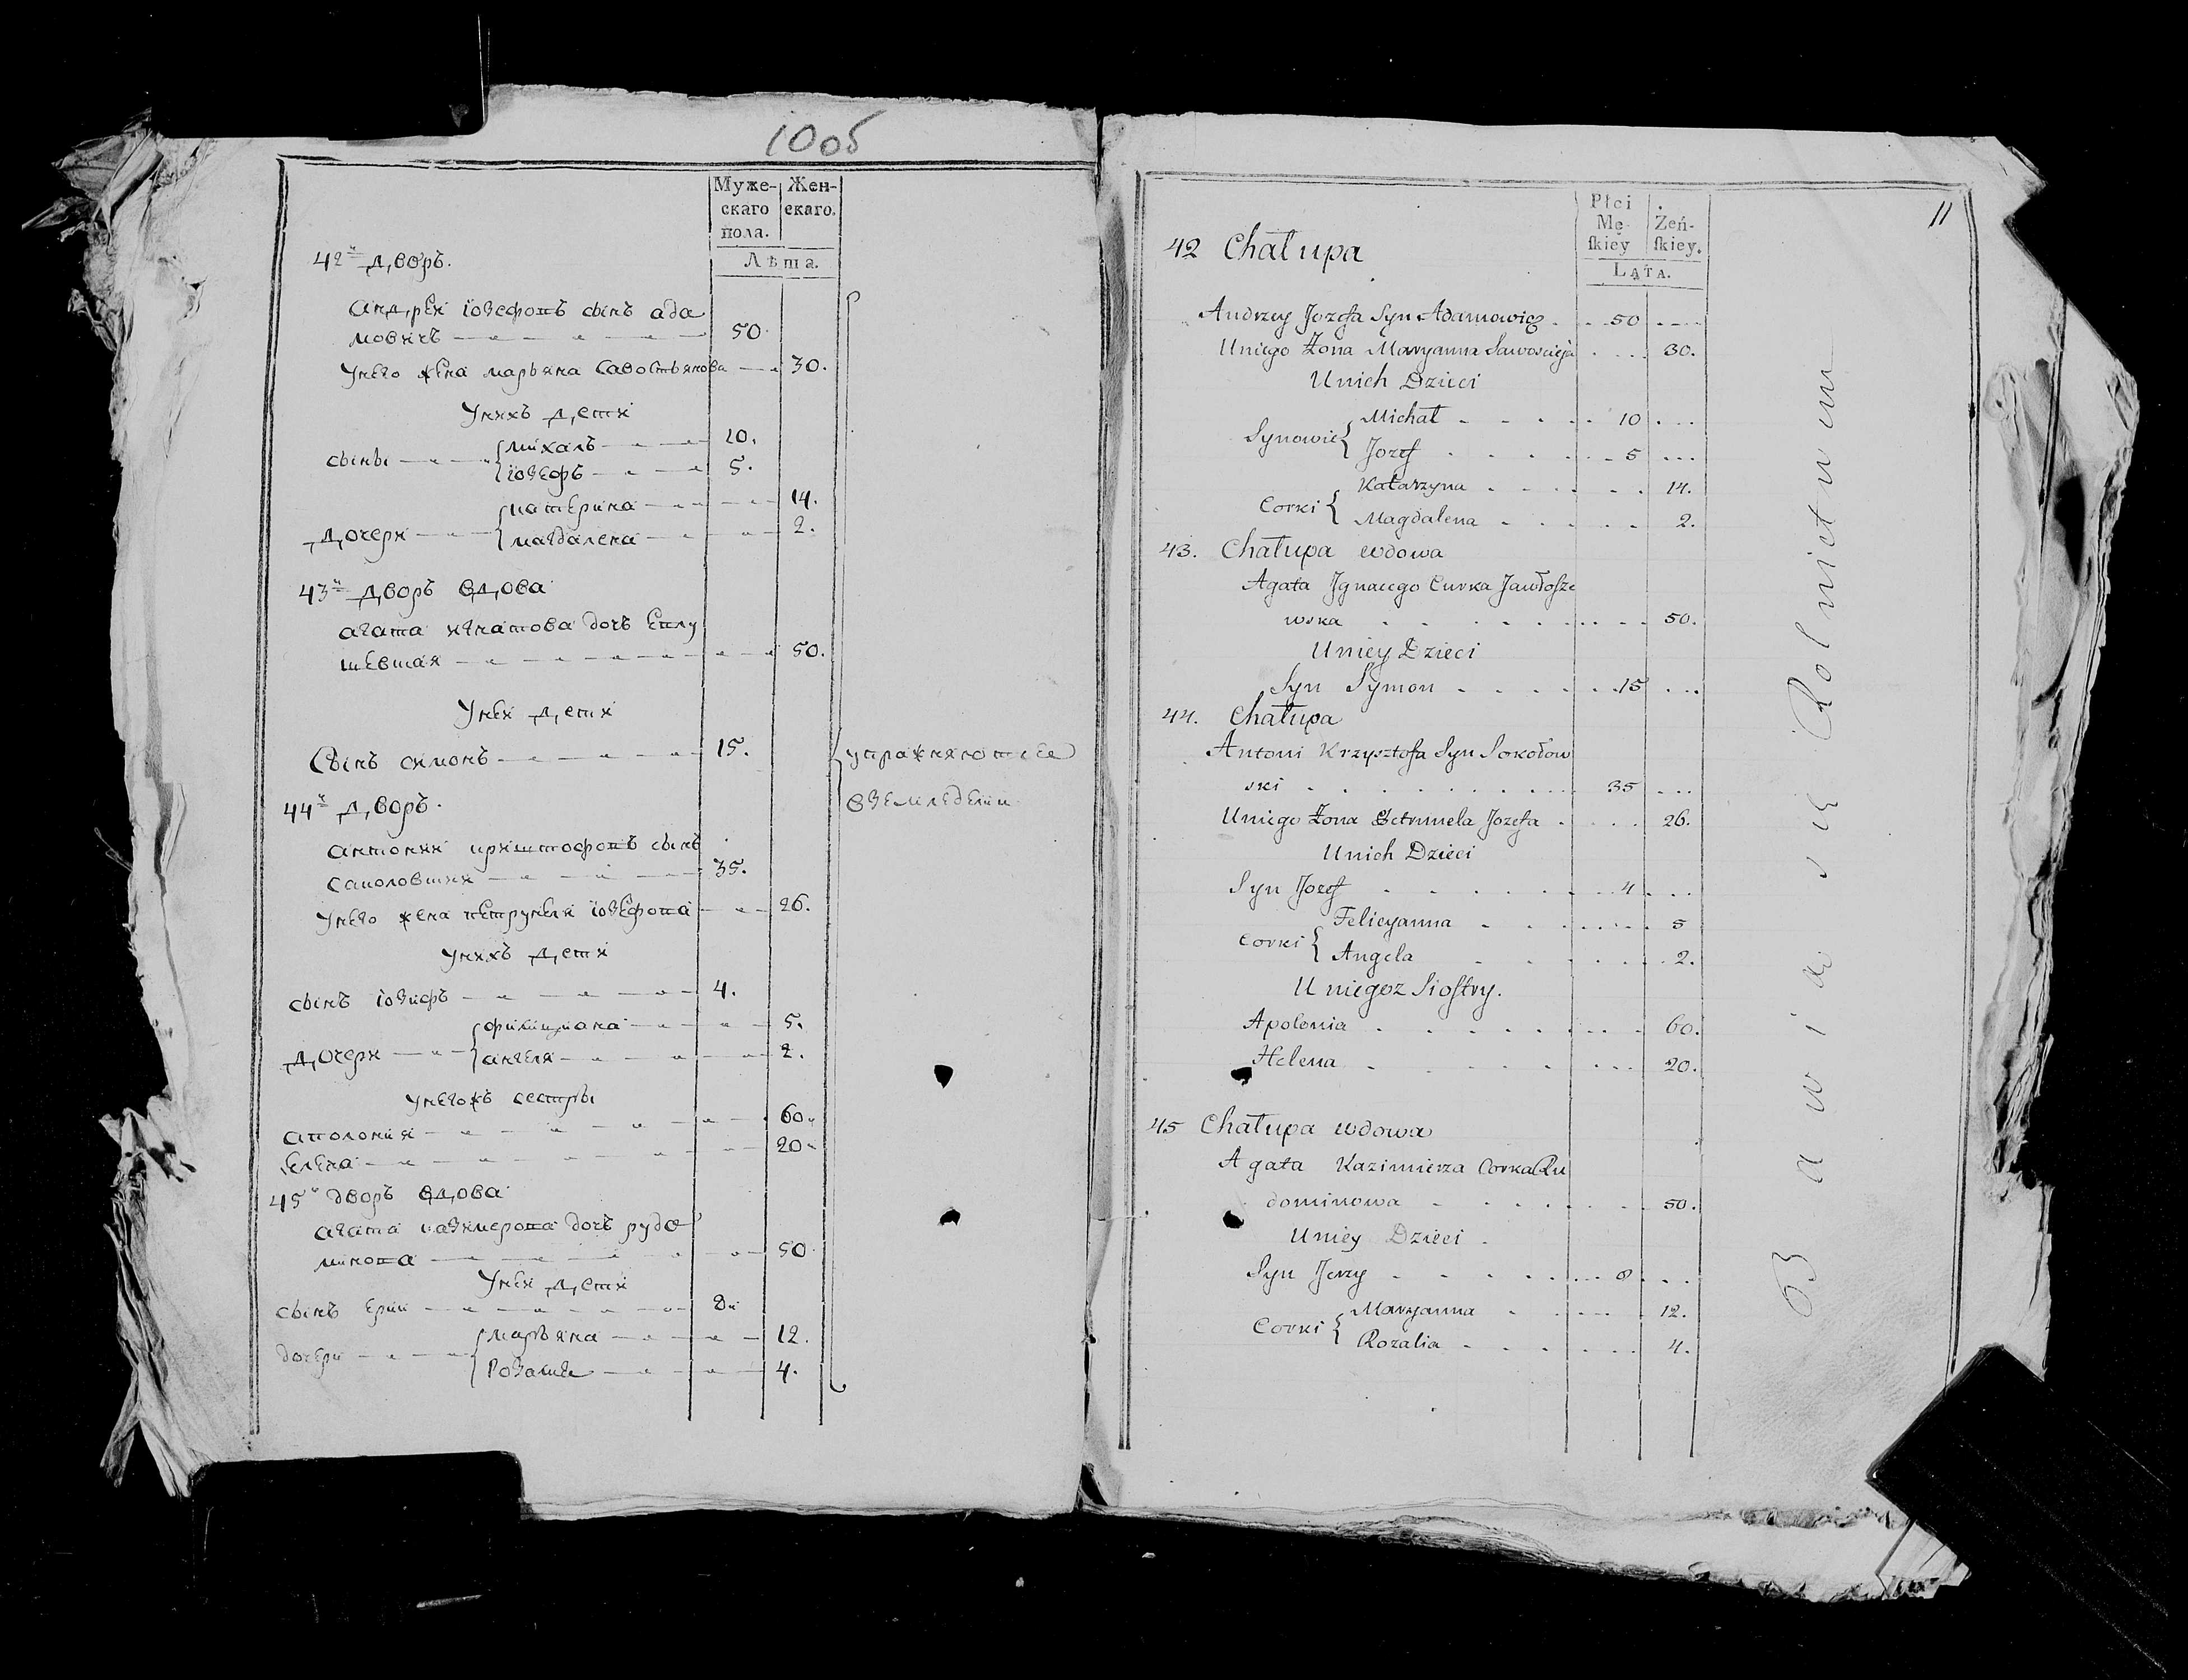 10об
Муже- Жен-
скаго скаго.
пола.
Лѣта.
42й дворъ.
Андрей їозефовъ сынъ ада
мовичъ 50.
Унего жена марьяна савостьянова 30.
Унихъ дети
сыны михалъ 10.
їозефъ 5.
дочери катерина 14.
магдалена 2.
43й дворъ вдова
агата игнатова дочь евлу
шевская 50.
Уней дети
Сынъ симонъ 15.
упражняютсе
вземледелии
44й дворъ.
антоний криштофовъ сынъ
саколовский 35.
Унего жена петрунеля їозефова 26.
Унихъ дети
сынъ їозифъ 4.
дочери филициана 5.
ангеля 2.
Унегожъ сестры
аполония 60.
елена 20.
45й дворъ вдова
агата казимерова дочь рудо
минова 50.
Уней дети
сынъ ерий 8.
дочери марьяна 12.
розалия 4.
11
Płci Żeń-
Mę- skiey.
skiey
LATA.
42 Chałupa
Andrzey Jozefa Syn Adamowicz 50
Uniego Żona Maryanna Sawoscieja 30.
Unich Dzieci
Synowie Michał 10
Jozef 5
Corki Katarzyna 14.
Magdalena 2.
43. Chałupa wdowa
Agata Jgnacego Curka Jawłosze
wska 50.
Uniey Dzieci
Syn Symon 15
44. Chałupa
Antoni Krzysztofa Syn Sokołow
ski 35
Uniego Żona Petrunela Jozefa 26.
Unich Dzieci
Syn Jozef 4
Corki Felicyanna 5
Angela 2.
Uniegoz Siostry.
Apolonia 60.
Helena 20.
45 Chałupa wdowa
Agata Kazimierza Corka Ru
dominowa 50.
Uniey Dzieci
Syn Jerzy 8
Corki Maryanna 12.
Rozalia 4.
Bawią się Rolnictwem